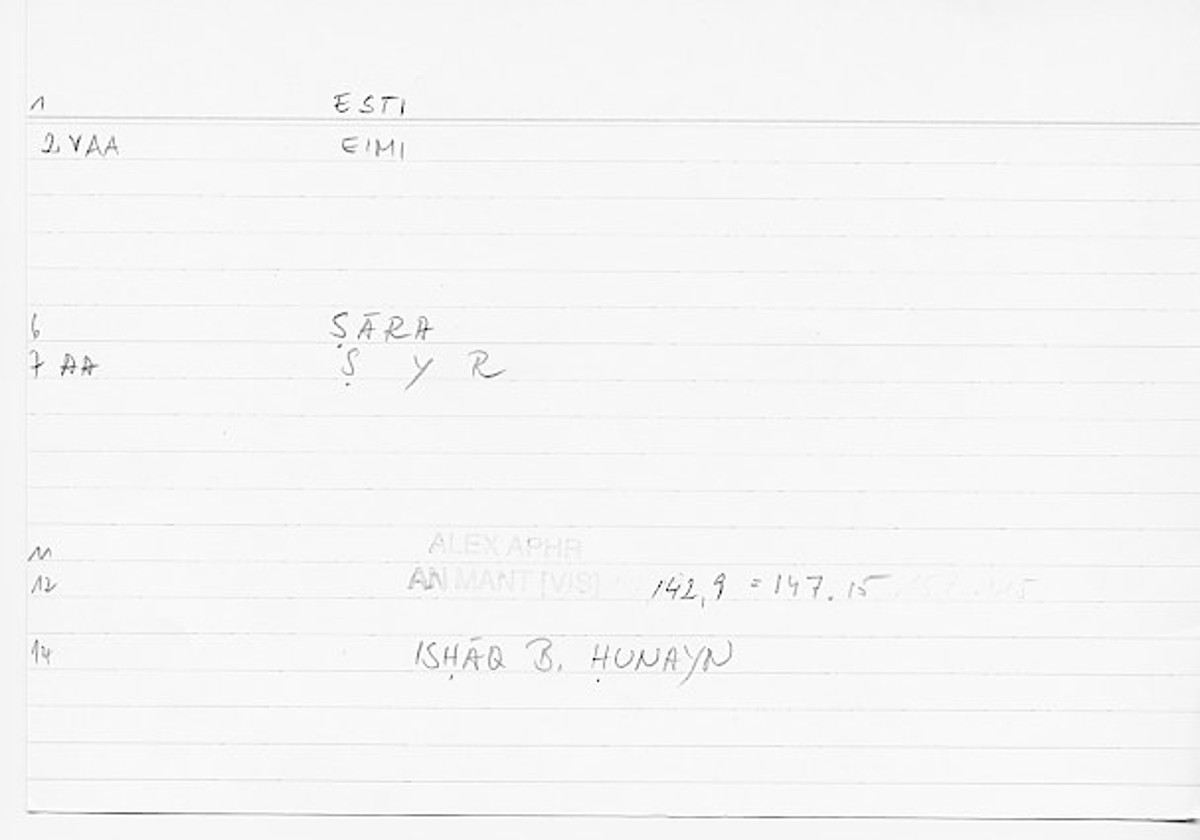 1 ESTI
2 VAA EIMI
6 ṢĀRA
7 AA Ṣ Y R
11 ALEX APHR
12 AN MANT [VIS] 142,9 = 147.15
14 ISḤĀQ B. ḤUNAYN